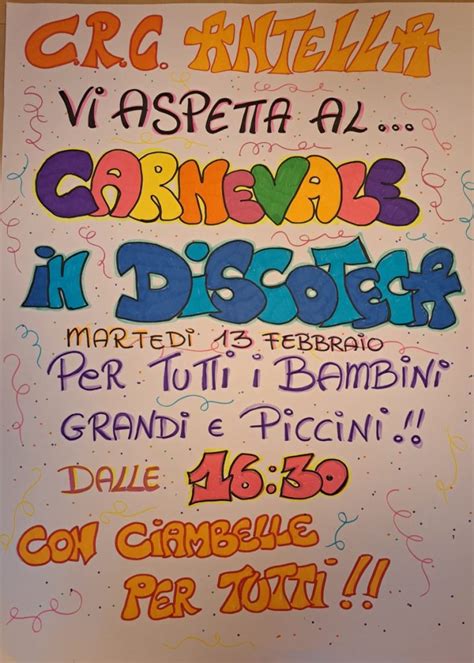 C.R.C. ANTELLA
Vi ASPETTA AL...
CARNEVALE
iN DiSCOTECA
MARTEDÌ 13 FEBBRAIO
PER TUTTI i BAMBiNi
GRANDi E PiCCiNi!!
DALLE 16:30
CON CiAMBELLE
PER TUTTi!!